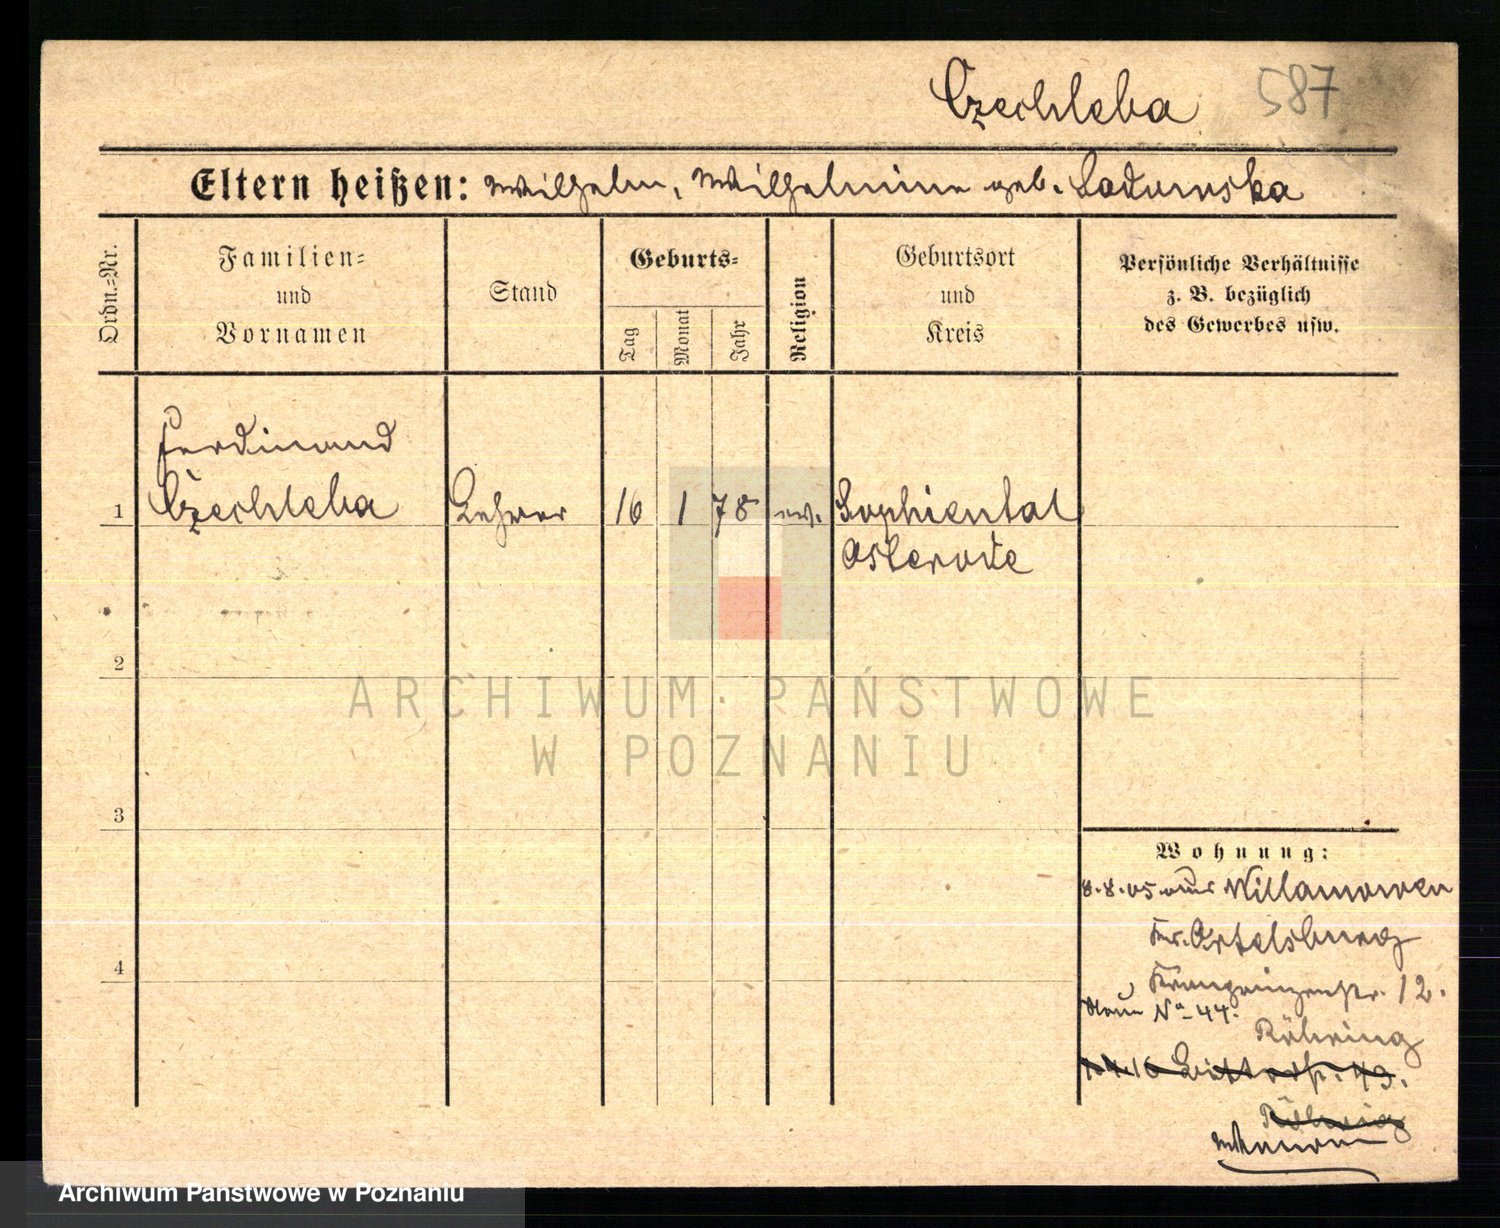 Czechleba 587
Eltern heißen: Wilhelm, Wilhelmine geb. Sadowska
Ordn.-Nr.
Familien-
und
Vornamen
Stand
Geburts-
Tag
Monat
Jahr
Religion
Geburtsort
und
Kreis
Persönliche Verhältnisse
z. B. bezüglich
des Gewerbes usw.
Ferdinand
1 Czechleba Lehrer 16 1 78 ev. Sophiental
Osterode
2
ARCHIWUM PAŃSTWOWE
W POZNANIU
3
Wohnung:
8.8.05 aus Willamowen
Kr. Ortelsburg
Kronprinzenstr. 12.
Neue No 44.
Röhring
49.
Röhring
4
Archiwum Państwowe w Poznaniu